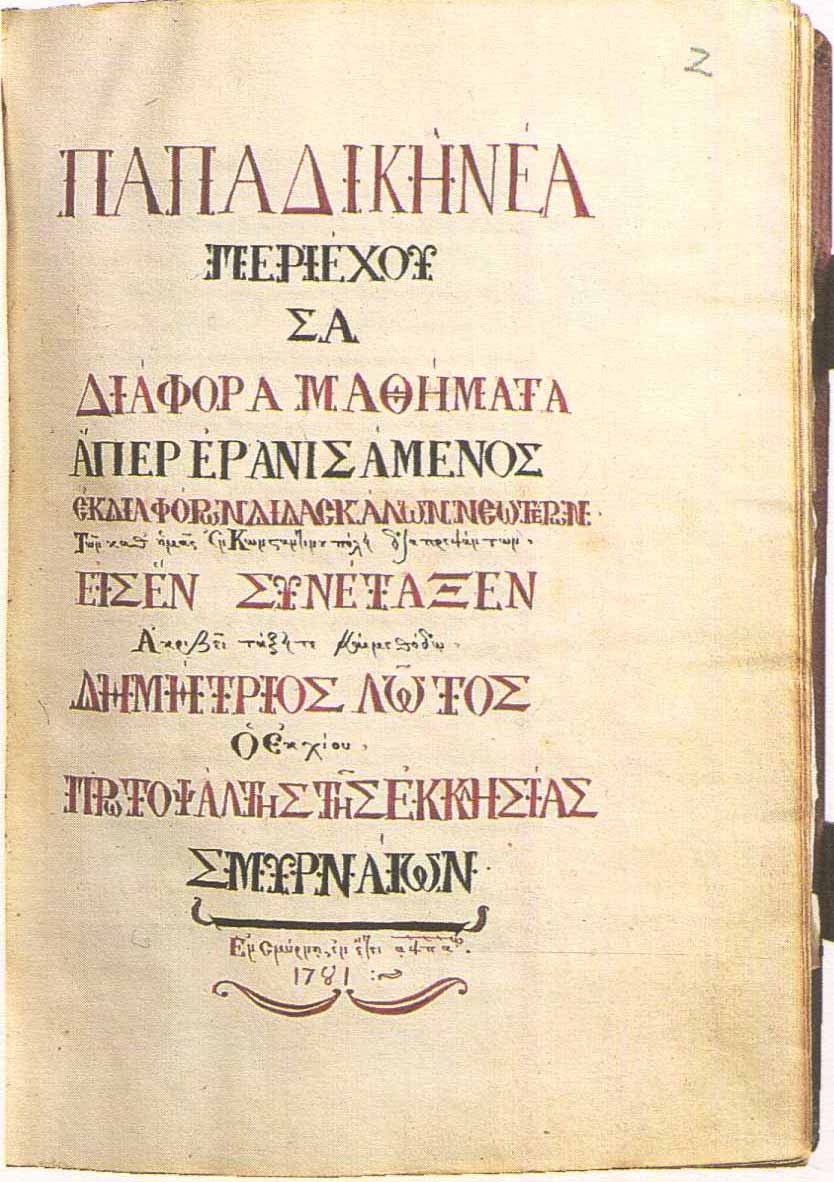 2
ΠΑΠΑΔΙΚῊ ΝΈΑ
ΠΕΡΙΈΧΟΥ
ΣΑ
ΔΙΆΦΟΡΑ ΜΑΘΉΜΑΤΑ
ἍΠΕΡ ἘΡΑΝΙΣΆΜΕΝΟΣ
ἘΚ ΔΙΑΦΌΡΩΝ ΔΙΔΑΣΚΆΛΩΝ ΝΕΩΤΈΡΩΝ.
Τῶν καθ ἡμᾶς ἐν Κωνσταντινουπόλει διαπρεψάντων.
ΕἸΣ ἝΝ ΣΥΝΈΤΑΞΕΝ
Ἀκριβεῖ τάξει τε καὶ μεθόδῳ.
ΔΗΜΉΤΡΙΟΣ ΛΩ͂ΤΟΣ
Ὁ Ἐκ χίου,
ΠΡΩΤΟΨΆΛΤΗΣ ΤΗ͂Σ ἘΚΚΛΗΣΊΑΣ
ΣΜΥΡΝΑΊΩΝ
Ἐν Σμύρνῃ, ἐν ἔτει αψπαῳ.
1781 :~